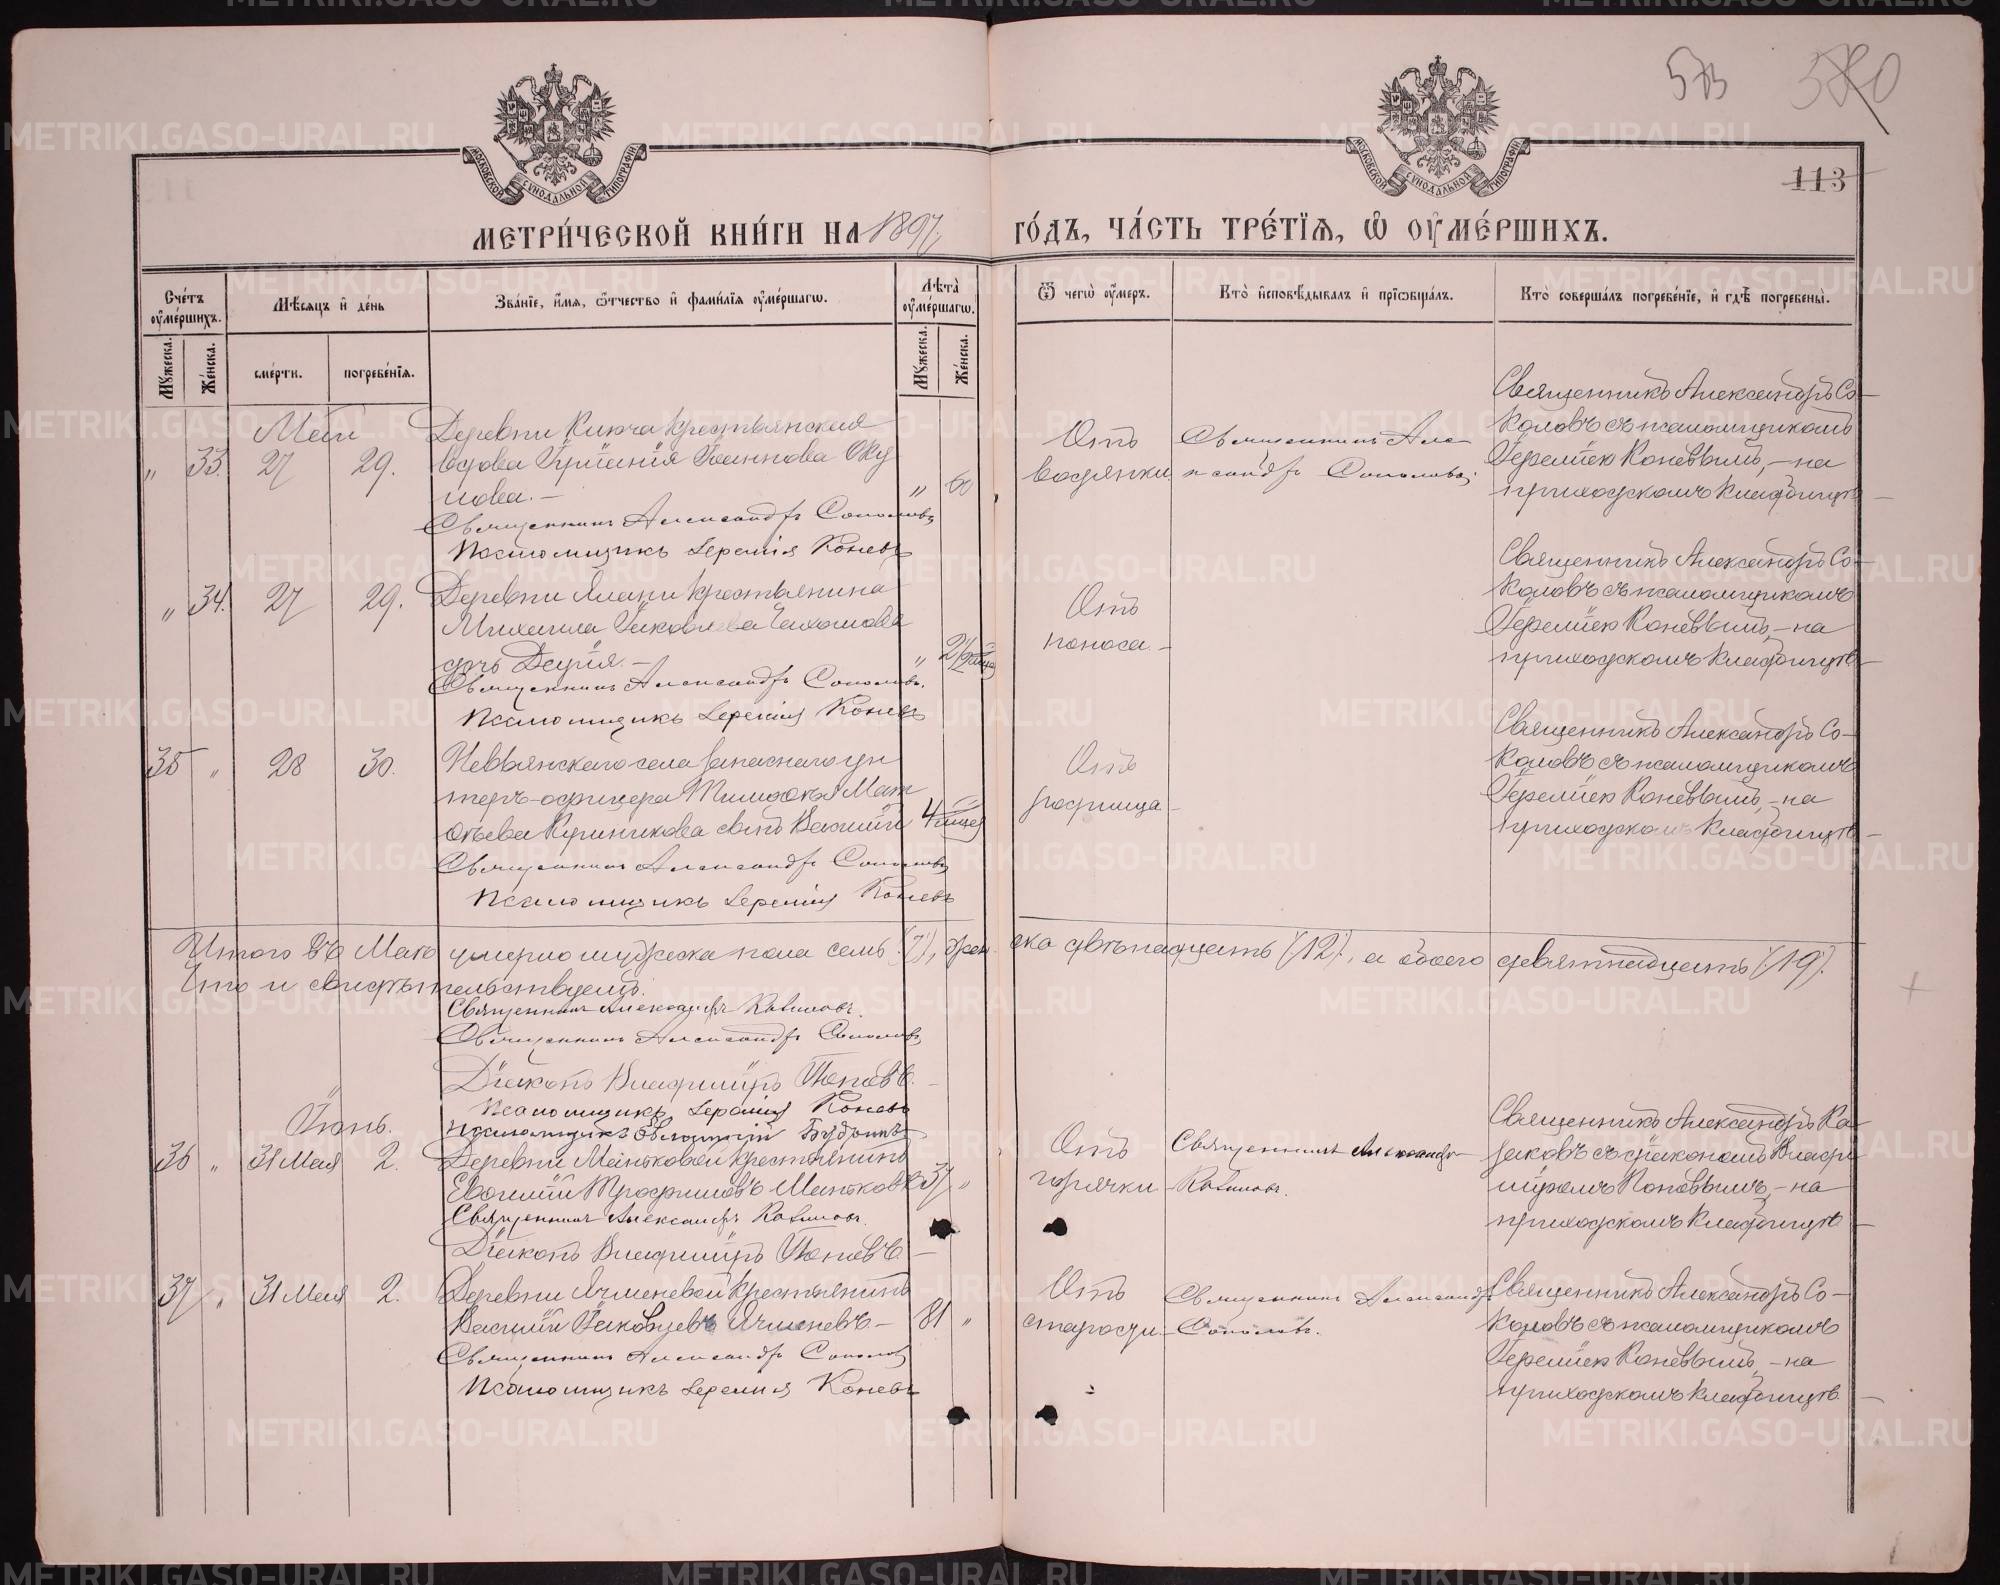 573 580
113
МОСКОВСКОЙ СѴНОДАЛЬНОЙ ТИПОГРАФИИ
МОСКОВСКОЙ СѴНОДАЛЬНОЙ ТИПОГРАФИИ
МЕТРИ́ЧЕСКОЙ КНИ́ГИ НА 1897 ГО́ДЪ, ЧА́СТЬ ТРЕ́ТЇѦ, Ѡ҆ ОУ҆МЕ́РШИХЪ.
Сче́тъ оу҆ме́ршихъ.
Мꙋжеска.
Же́нска.
Мѣ́сѧцъ и҆ де́нь
сме́рти.
погребе́нїѧ.
Зва́нїе, и҆́мѧ, ѻ҆́тчество и҆ фами́лїѧ оу҆ме́ршагѡ.
Лѣ́та оу҆ме́ршагѡ.
Мꙋжеска.
Же́нска.
Ѿ чегѡ̀ оу҆́меръ.
Кто̀ и҆сповѣ́дывалъ и҆ прїѡбща́лъ.
Кто̀ соверша́лъ погребе́нїе, и҆ гдѣ̀ погребены̀.
Май
„ 33. 27 29. Деревни Ключа крестьянская
вдова Іоаннова Оку
лова. – „ 60
Священникъ Александръ Соколовъ
Псаломщикъ Іеремія Коневъ
Отъ водянки
Священникъ Александръ Соколовъ
Священникъ Александръ Со-
коловъ съ псаломщикомъ
Іереміею Коневымъ, – на
приходскомъ кладбищѣ –
„ 34. 27 29. Деревни крестьянина
Михаила Яковлева
дочь – „ 2
Священникъ Александръ Соколовъ.
Псаломщикъ Іеремія Коневъ
Отъ поноса. –
Священникъ Александръ Со-
коловъ съ псаломщикомъ
Іереміею Коневымъ, – на
приходскомъ кладбищѣ –
35 „ 28 30. Невьянскаго села запаснаго ун
теръ-офицера Тимофея Мат
фѣева сынъ Василій 4 мѣсяц
Священникъ Александръ Соколовъ
Псаломщикъ Іеремія Коневъ
Отъ родимца –
Священникъ Александръ Со-
коловъ съ псаломщикомъ
Іереміею Коневымъ, – на
приходскомъ кладбищѣ –
Итого въ Маѣ умерло мужеска пола семь (7), женска двѣнадцать (12), а обоего девятнадцать (19).
Что и свидѣтельствуемъ.
Священникъ Александръ
Священникъ Александръ Соколовъ
Діаконъ Владиміръ Поповъ. –
Псаломщикъ Іеремія Коневъ
Псаломщикъ
Іюнь.
36 „ 31 Мая 2. Деревни Маньковой крестьянинъ
Евѳимій Трофимовъ Маньковъ 37 „
Священникъ Александръ
Діаконъ Владиміръ Поповъ –
Отъ горячки
Священникъ Александръ
Священникъ Александръ Ка-
заковъ съ діакономъ Влади
міромъ Поповымъ, – на
приходскомъ кладбищѣ –
37 „ 31 Мая 2. Деревни Ячменевой крестьянинъ
Василій Яковлевъ Ячменевъ – 81 „
Священникъ Александръ Соколовъ
Псаломщикъ Іеремія Коневъ
Отъ старости.
Священникъ Александръ Соколовъ.
Священникъ Александръ Со-
коловъ съ псаломщикомъ
Іереміею Коневымъ, – на
приходскомъ кладбищѣ –
METRIKI.GASO-URAL.RU